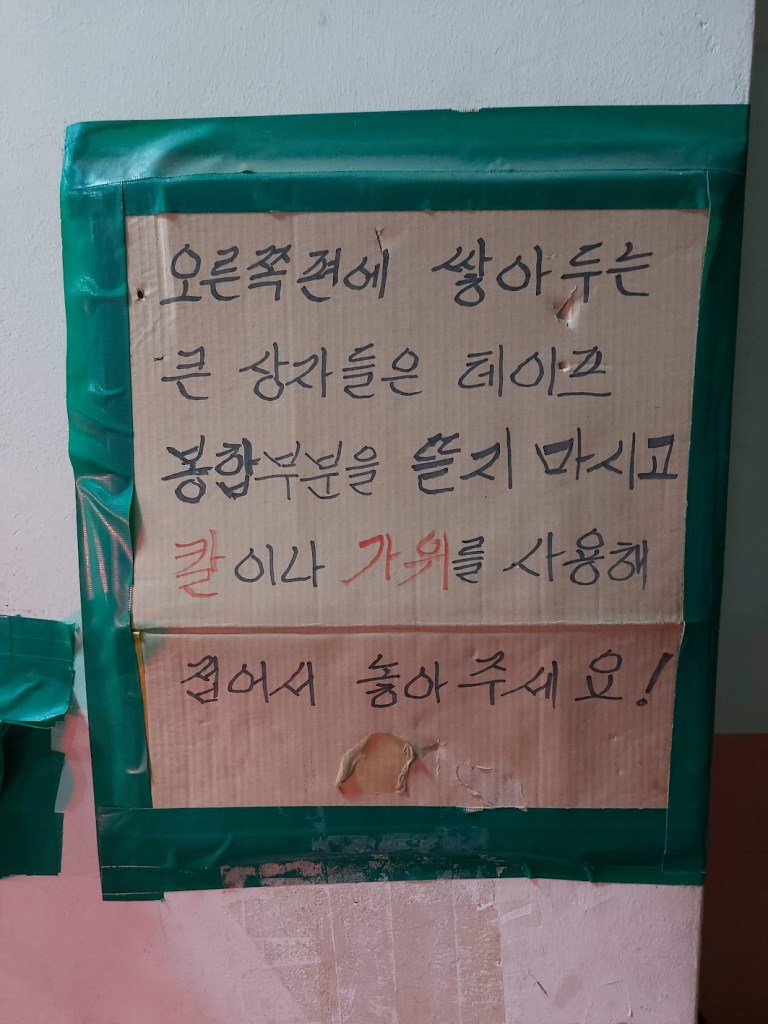 오른쪽편에 쌓아두는
큰 상자들은 테이프
봉합부분을 뜯지 마시고
칼이나 가위를 사용해
접어서 놓아주세요!